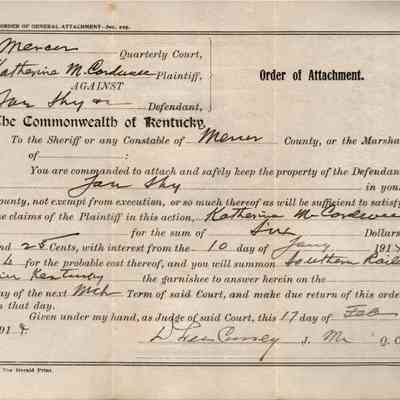 ORDER OF GENERAL ATTACHMENT—Sec.
Mercer Quarterly Court,
Katherine M. Plaintiff,
AGAINST
Order of Attachment.
Defendant,
The Commonwealth of Kentucky,
To the Sheriff or any Constable of Mercer County, or the Marsha
of :
You are commanded to attach and safely keep the property of the Defendan
in you
ounty, not exempt from execution, or so much thereof as will be sufficient to satisfy
e claims of the Plaintiff in this action, Katherine
for the sum of Dollars
nd 25 Cents, with interest from the 10 day of Jany 191
for the probable cost thereof, and you will summon Southern Rail
in Kentucky the garnishee to answer herein on the
ay of the next Mch Term of said Court, and make due return of this orde
n that day.
Given under my hand, as Judge of said Court, this 17 day of Feb
91
J. M Q. C
The Herald Print.